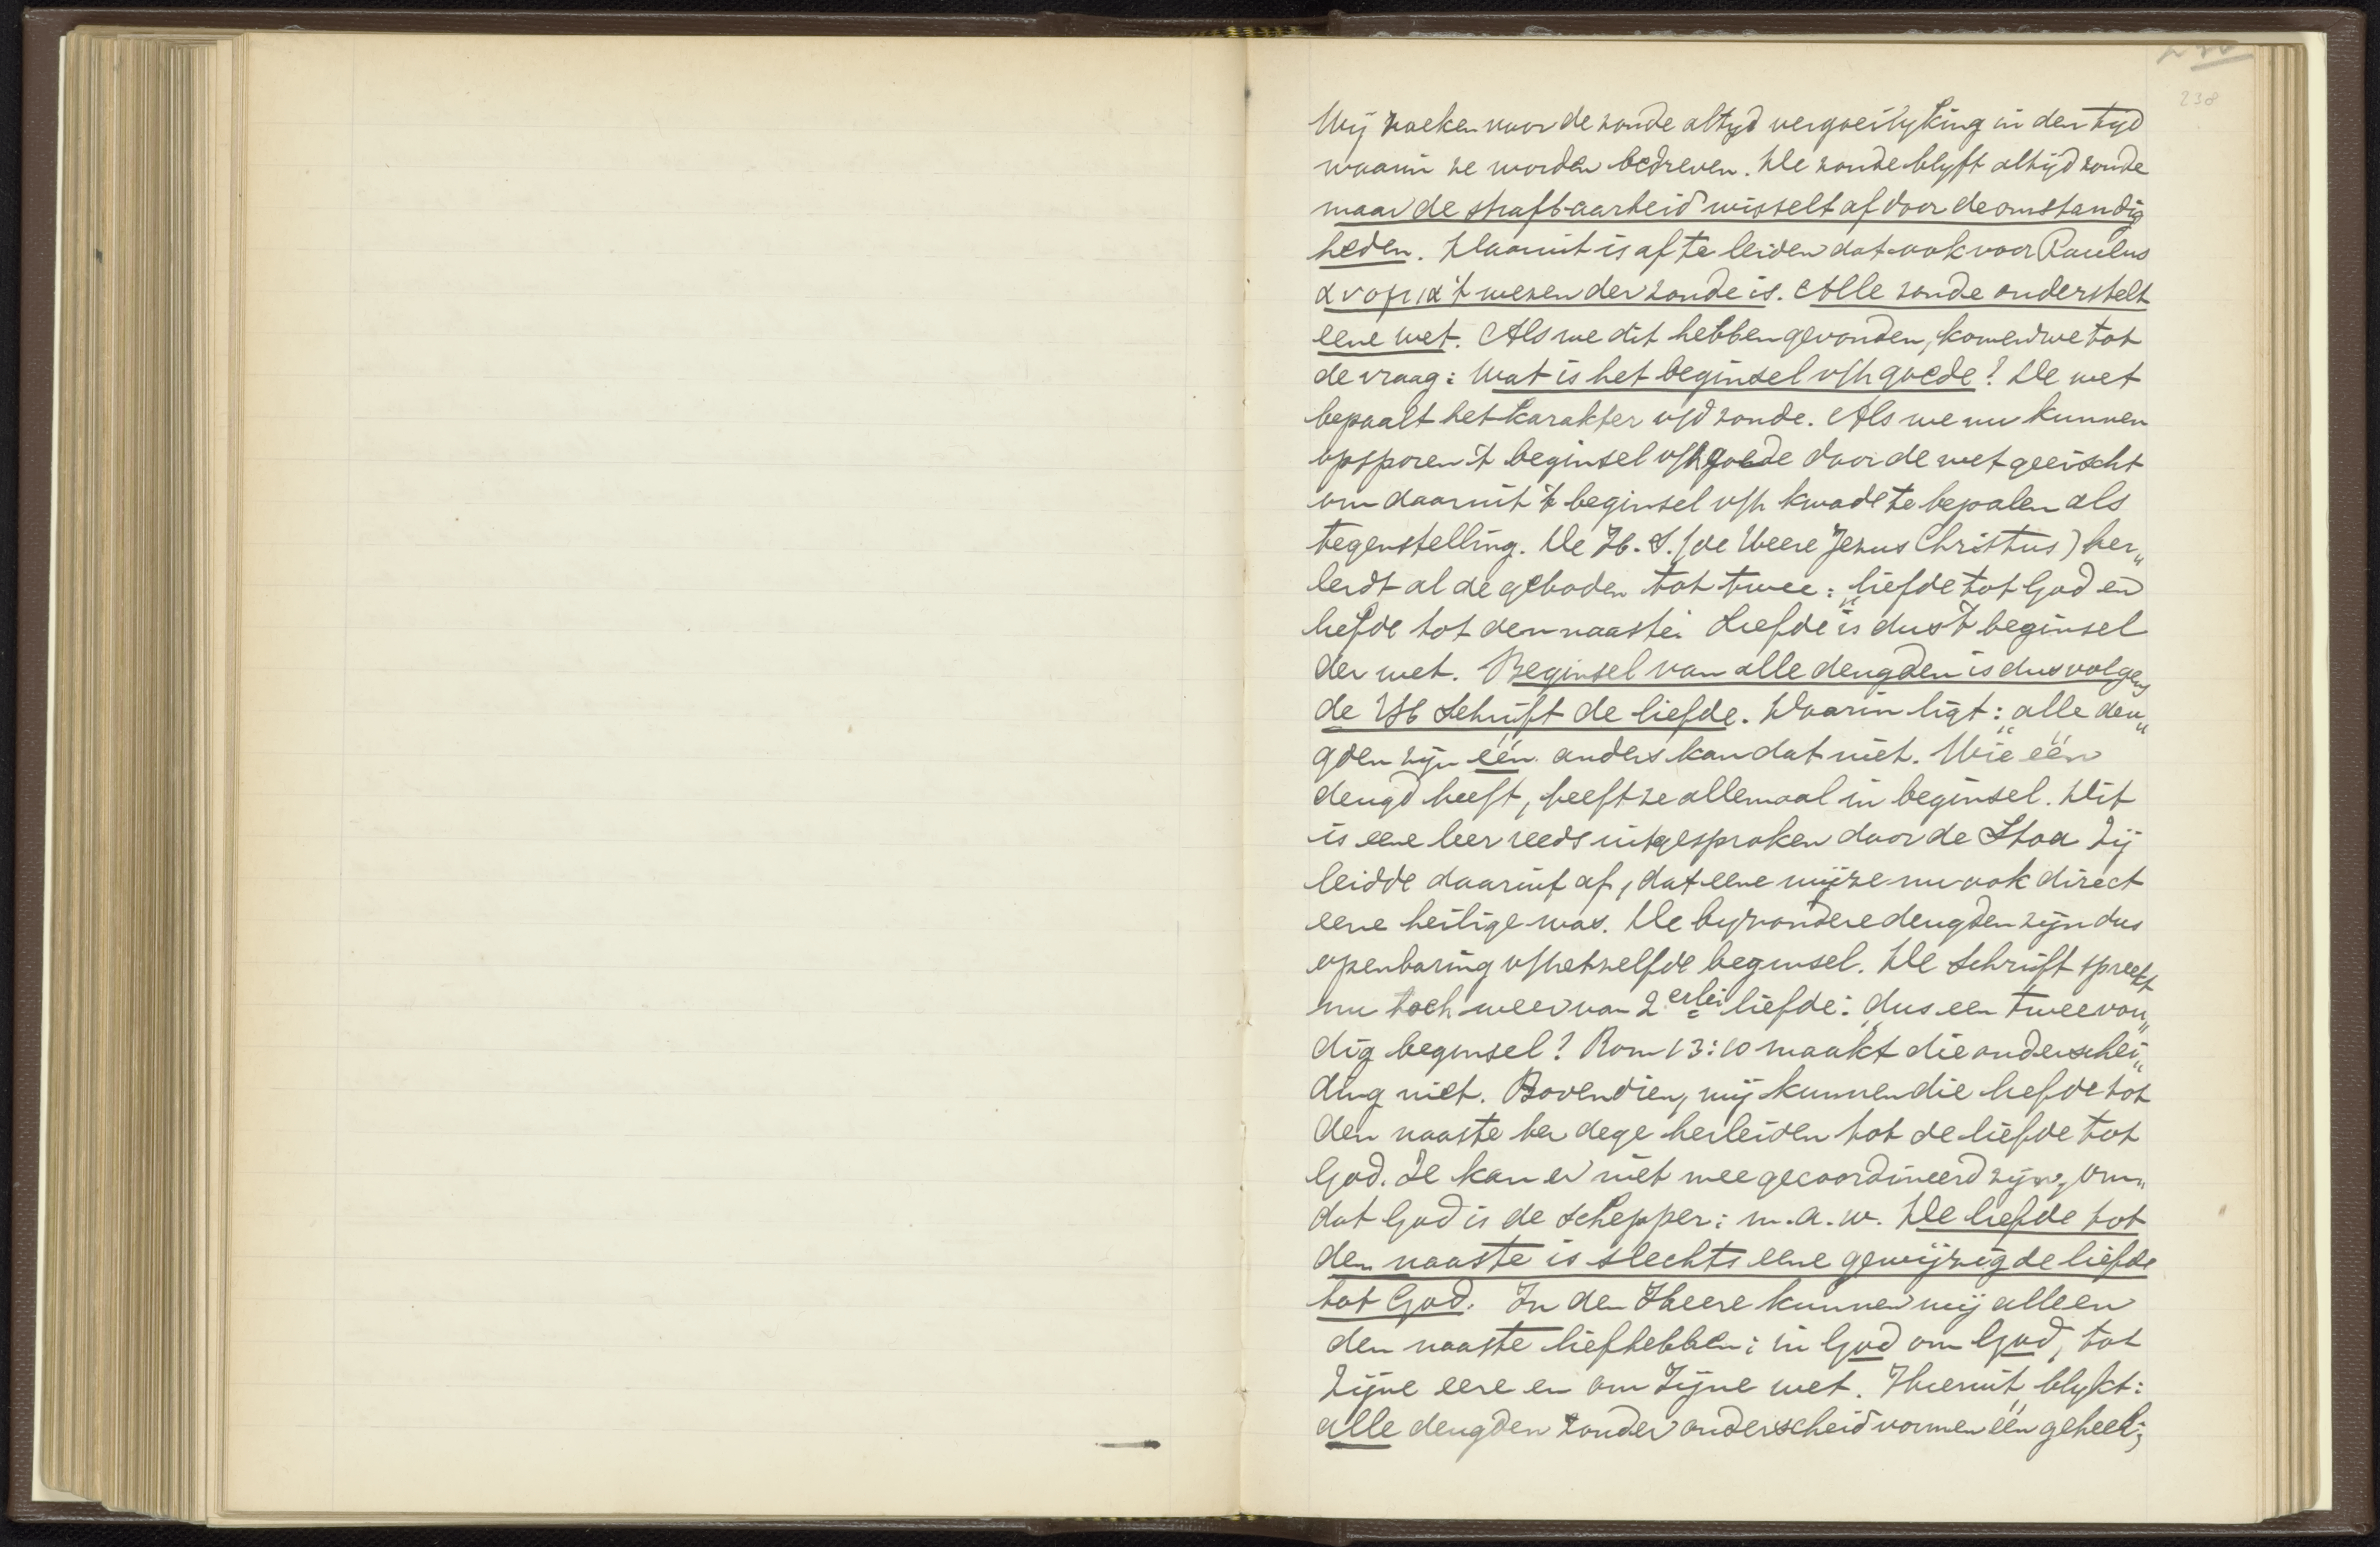 238
Wij zoeken voor de zonde altyd vergoeilyking in den tyd
waarin ze worden bedreven. De zonde blyft altijd zonde
maar de strafbaarheid wisselt af door de omstandig
heden. Daaruit is af te leiden dat ook voor Paulus
ανομια 't wezen der zonde is. Alle zonde onderstelt
eene wet. Als we dit hebben gevonden, komen we tot
de vraag: Wat is het beginsel v/h goede? De wet
bepaalt het karakter v/d zonde. Als we nu kunnen
opsporen 't beginsel v/h goede door de wet geeischt
om daaruit 't beginsel v/h kwade te bepalen als
tegenstelling. De H. S. (de Heere Jezus Christus) her„
leidt al de geboden tot twee: liefde tot God en
liefde tot den naaste. Liefde is dus 't beginsel
der wet. Beginsel van alle deugden is dus volgens
de H Schrift de liefde. Daarin ligt: alle deu„
„gden zijn één anders kan dat niet. Wie één
deugd heeft, heeft ze allemaal in beginsel. Dit
is eene leer reeds uitgesproken door de Stoa Zij
leidde daaruit af, dat eene wijze nu ook direct
eene heilige was. De byzondere deugden zijn dus
openbaring v/hetzelfde beginsel. De Schrift spreekt
nu toch weer van 2erlei liefde: dus een tweevou„
„dig beginsel? Rom 13:10 maakt die onderschei„
ding niet. Bovendien, wij kunnen die liefde tot
den naaste ter dege herleiden tot de liefde tot
God. Ze kan er niet mee gecoordineerd zijn, om„
dat God is de Schepper: m.a.w. De liefde tot
den naaste is slechts eene gewijzigde liefde
tot God. In den Heere kunnen wij alleen
den naaste liefhebben: in God om God, tot
Zijne eere en om Zijne wet. Hieruit blykt:
alle deugden zonder onderscheid vormen één geheel;